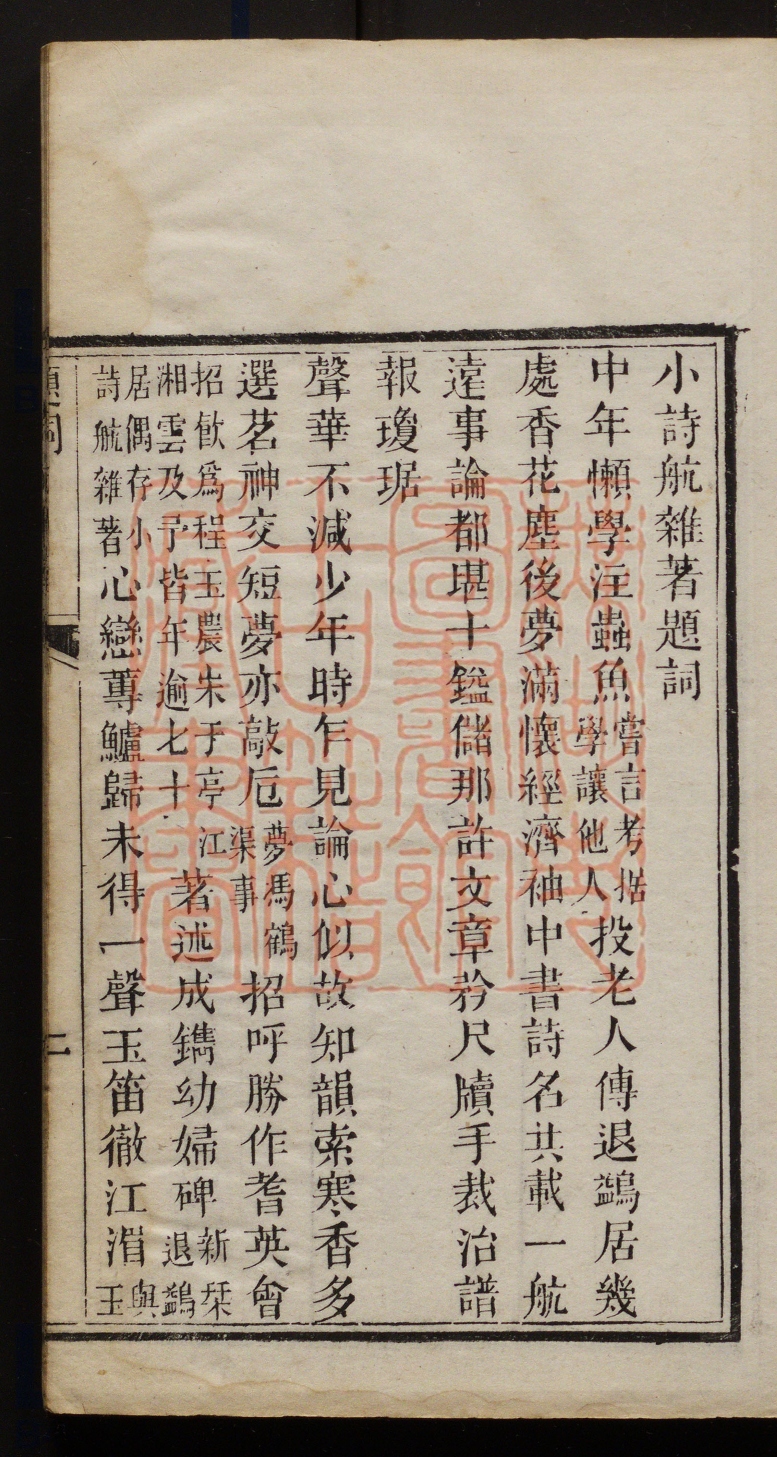 小詩航雜著題詞
中年懶學注蟲魚嘗言考据學讓他人投老人傳退鷁居幾
處香花塵後夢滿懷經濟袖中書詩名共載一航
遠事論都堪十鎰儲那許文章矜尺牘手裁治譜
報瓊琚
聲華不減少年時乍見論心似故知韻索寒香多
選茗神交短夢亦敲卮夢馮鶴渠事招呼勝作耆英會
招㱃爲程玉農朱于亭江湘雲及予皆年逾七十著述成鐫幼婦碑新栞退鷁
居偶存小詩航雜著心戀蓴鱸歸未得一聲玉笛徹江湄與玉
題詞
二